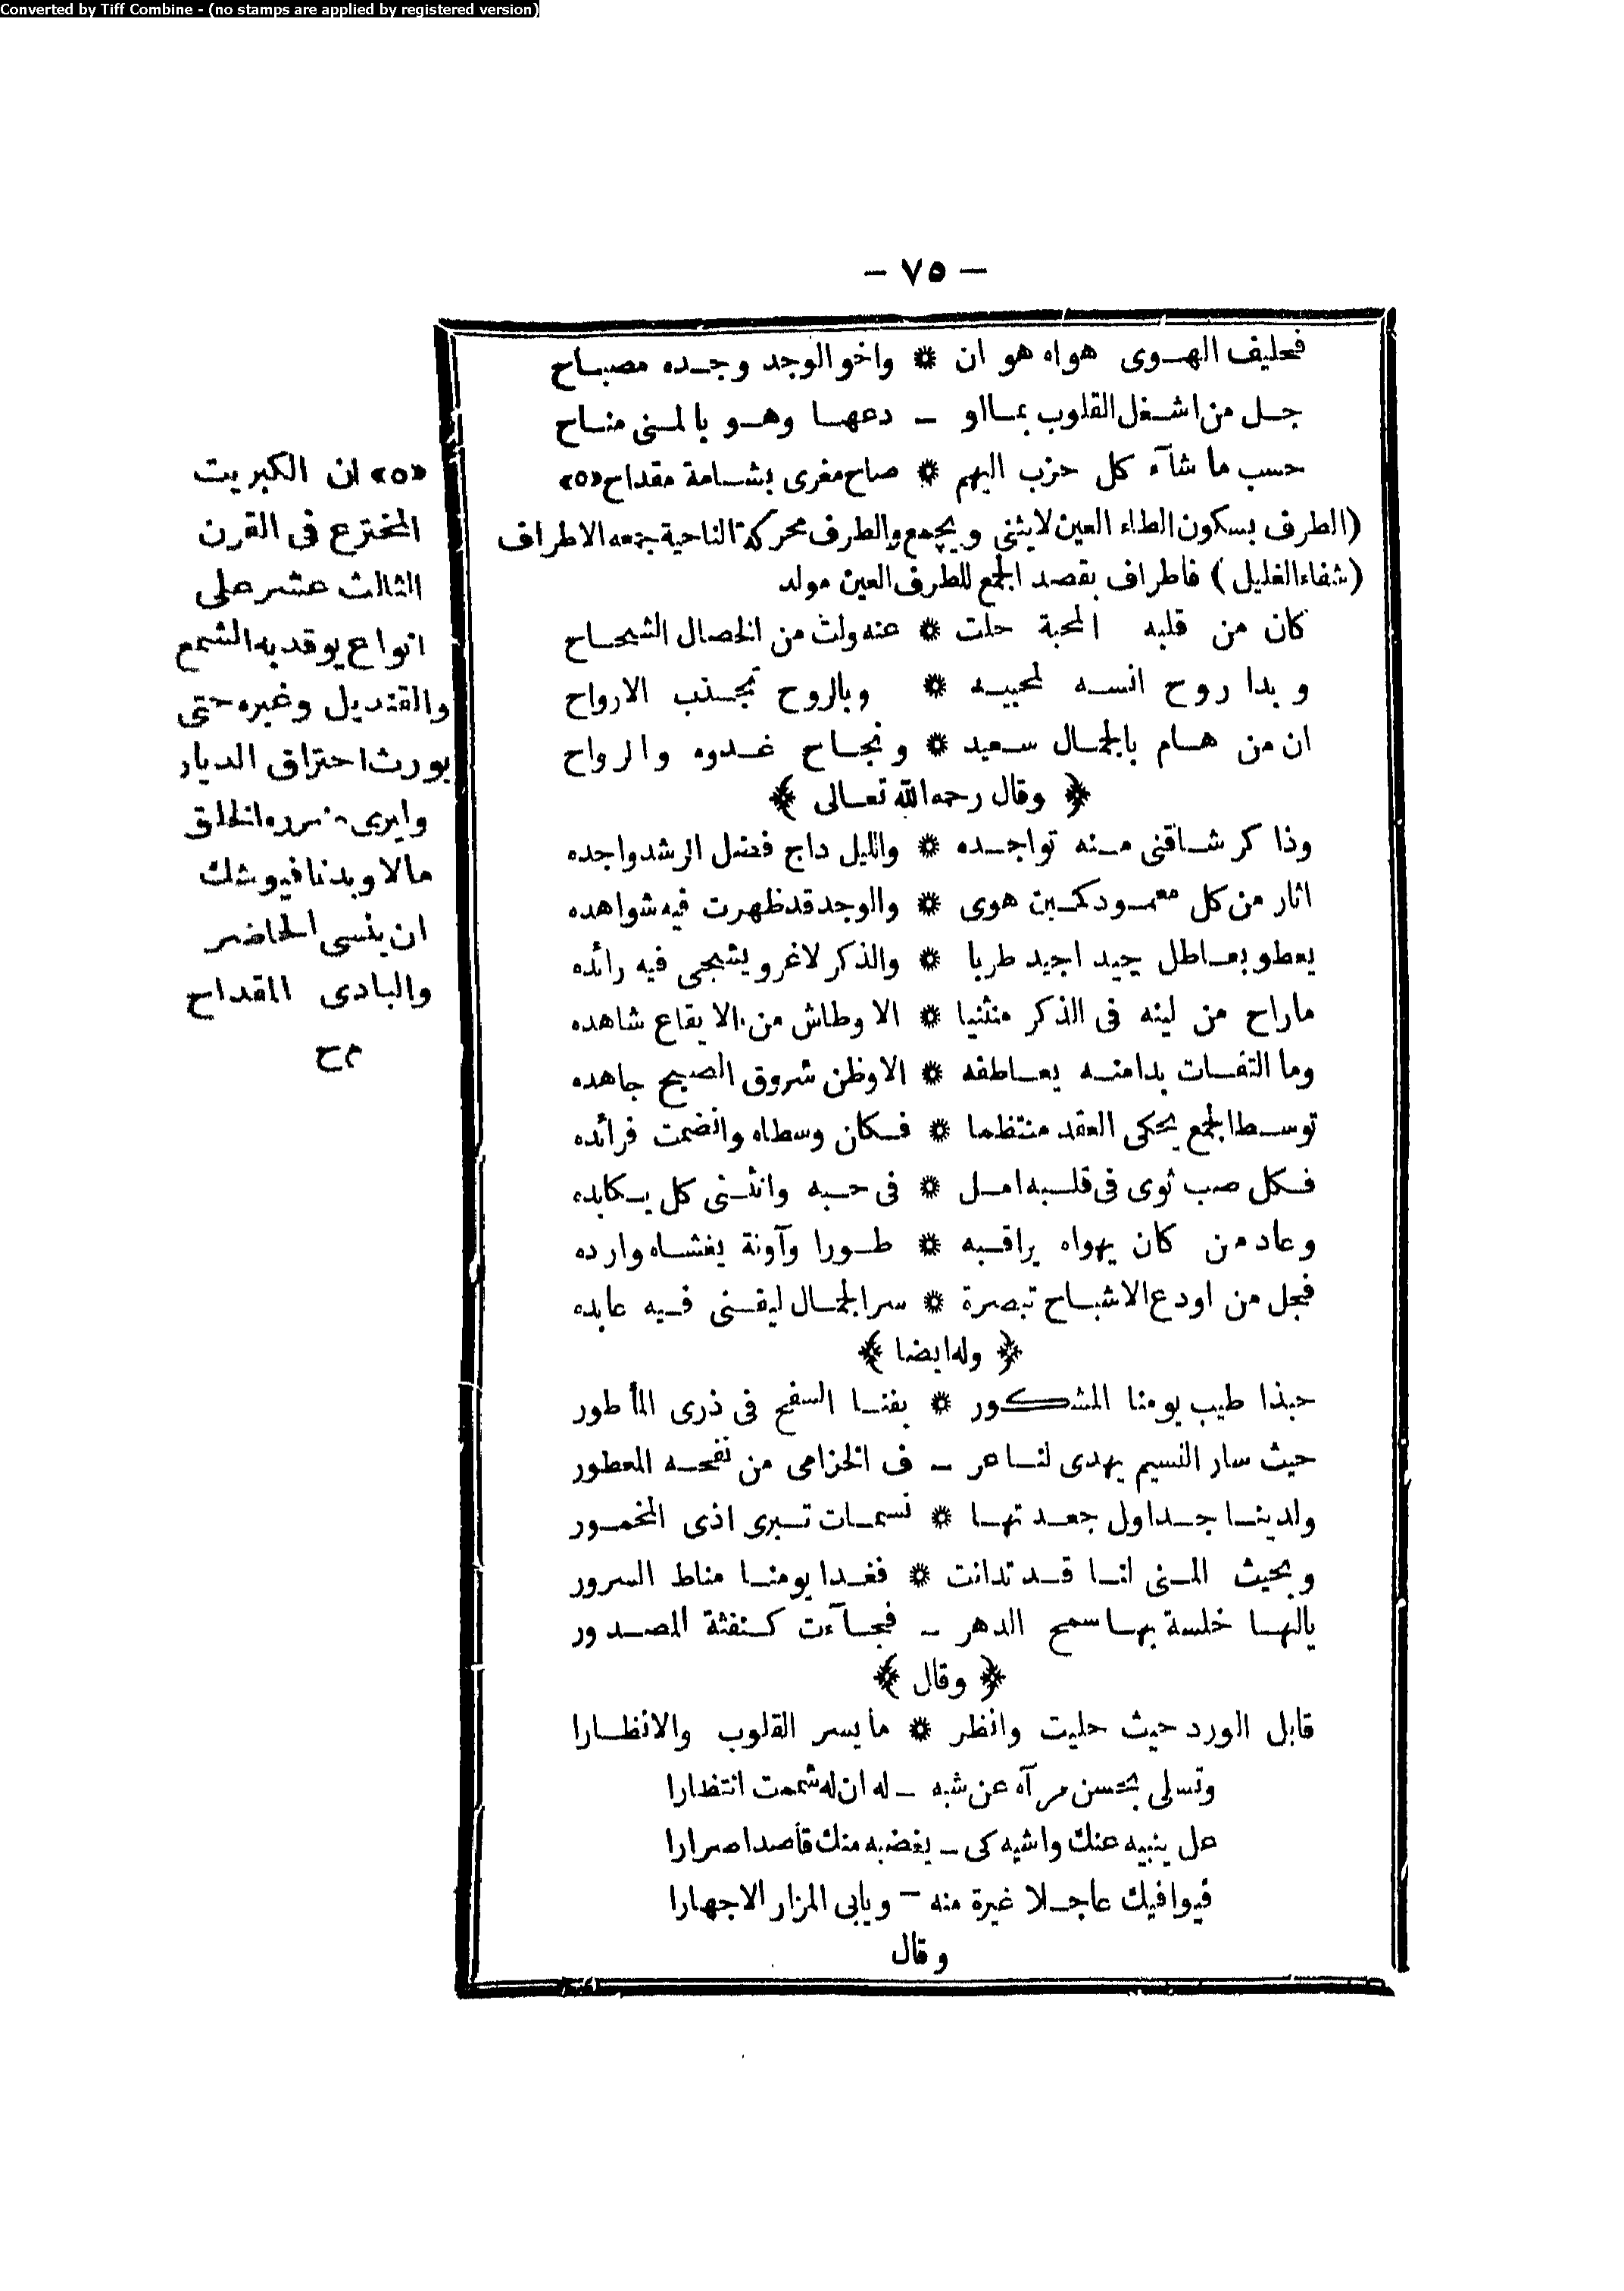 Converted by Tiff Combine - (no stamps are applied by registered version)
— ٧٥ —
فحليف الهوى هواه هو ان * واخو الوجد وجده مصباح
جل من اشغل القلوب بما او – دعها وهو بالمنى مناح
حسب ما شآء كل حزب اليهم * صاح مغرى بشامة مقداح «٥»
(الطرف بسكون الطاء العين لايثنى ويجمع والطرف محركة الناحية جمعه الاطراف
(شفاء الغليل) فاطراف بقصد الجمع للطرف العين مولد
كان من قلبه المحبة حلت * عنه ولث من الخصال الشحاح
وبدا روح انسه لمحبيه * وبالروح تجذب الارواح
ان من هام بالجمال سعيد * ونجاح غدوه والرواح
﴿ وقال رحمه الله تعالى ﴾
وذا كر شاقنى منه تواجده * والليل داج فضل الرشد واجده
اثار من كل معمود كمين هوى * والوجد قد ظهرت فيه شواهده
يعطو بعاطل جيد اجيد طربا * والذكر لاغرو يشجى فيه رائده
ماراح من لينه فى الذكر منثنيا * الا وطاش من الايقاع شاهده
وما التفات بدامنه يعاطفه * الا وظن شروق الصبح جاهده
توسط الجمع يحكى العقد منتظما * فكان وسطاه وانضمت فرائده
فكل صب ثوى فى قلبه امل * فى حبه وانثنى كل يكابده
وعاد من كان يهواه يراقبه * طورا وآونة يغشاه وارده
فجل من اودع الاشباح تبصرة * سر الجمال ليفنى فيه عابده
﴿ وله ايضا ﴾
حبذا طيب يومنا المشكور * بفنا السفح فى ذرى المأطور
حيث سار النسيم يهدى لنا عر – ف الخزامى من نفحه المعطور
ولدينا جداول جعدتها * نسمات تبرى اذى المخمور
وبحيث المنى لنا قد تدانت * فغدا يومنا مناط السرور
يالها خلسة بها سمح الدهر – فجآءت كنفثة المصدور
﴿ وقال ﴾
قابل الورد حيث حليت وانظر * ما يسر القلوب والانظارا
وتسلى بحسن مرآه عن شبه – له ان له شممت انتظارا
عل ينبيه عنك واشيه كى – يغضبه منك قاصدا صرارا
فيوافيك عاجلا غيرة منه – ويابى المزار الاجهارا
وقال
«٥» ان الكبريت
المخترع فى القرن
الثالث عشر على
انواع يوقد به الشمع
والقنديل وغيره حتى
يورث احتراق الديار
الخلق
مالا وبدنا فيوشك
ان ينسى الحاضر
والبادى المقداح
م ح